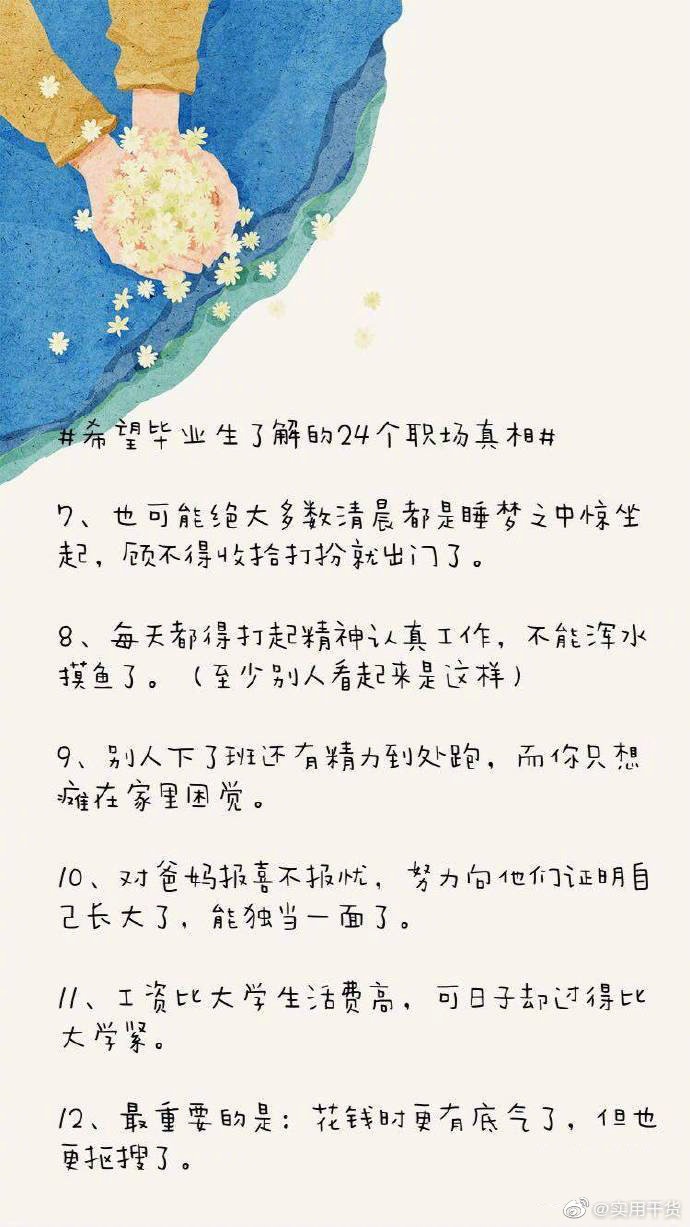 #希望毕业生了解的24个职场真相#
7、也可能绝大多数清晨都是睡梦之中惊坐
起，顾不得收拾打扮就出门了。
8、每天都得打起精神认真工作，不能浑水
摸鱼了。（至少别人看起来是这样）
9、别人下了班还有精力到处跑，而你只想
瘫在家里困觉。
10、对爸妈报喜不报忧，努力向他们证明自
己长大了，能独当一面了。
11、工资比大学生活费高，可日子却过得比
大学紧。
12、最重要的是：花钱时更有底气了，但也
更抠搜了。
@实用干货